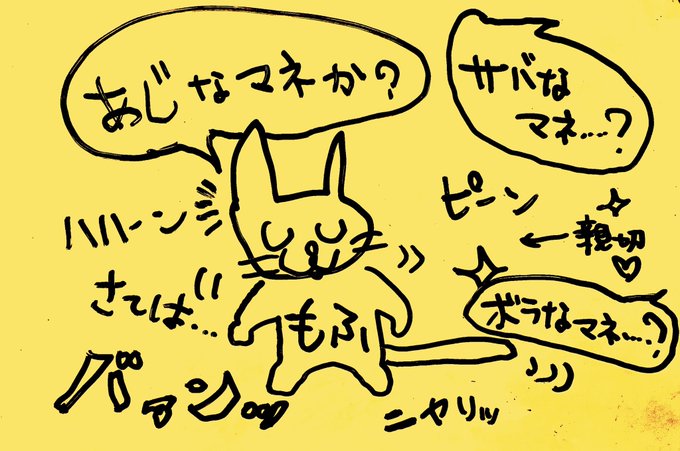 あじなマネか?
サバな
マネ....?
ハハーン
ピーン
←親切♡
さては...
もふ
ボラなマネ...?
バァーン
ニヤリッ